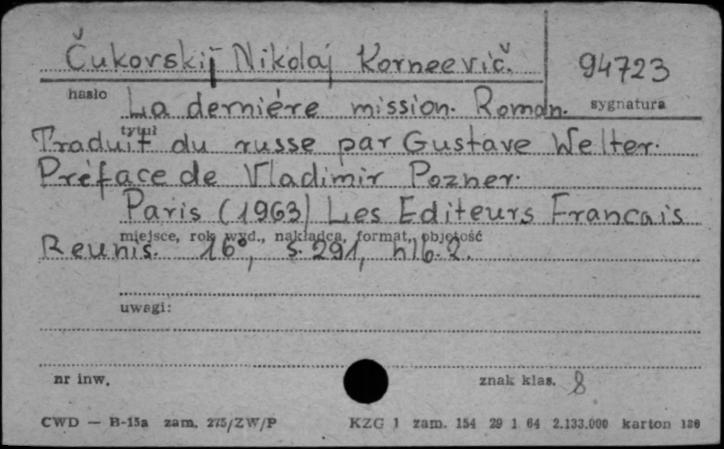 Čukovskij Nikolaj Korneevič.
94723
hasło
La derniére mission. Roman.
sygnatura
tytuł
Traduit du russe par Gustave Welter.
Préface de Vladimir Pozner.
Paris (1963) Les Editeurs Francais
miejsce, rok wyd., nakładca, format, objętość
Reunis. 16°, s. 291, nlb. 2.
uwagi:
nr inw.
znak klas. 8
CWD — B-15a zam. 275/ZW/P
KZG 1 zam. 154 29 1 64 2.133.000 karton